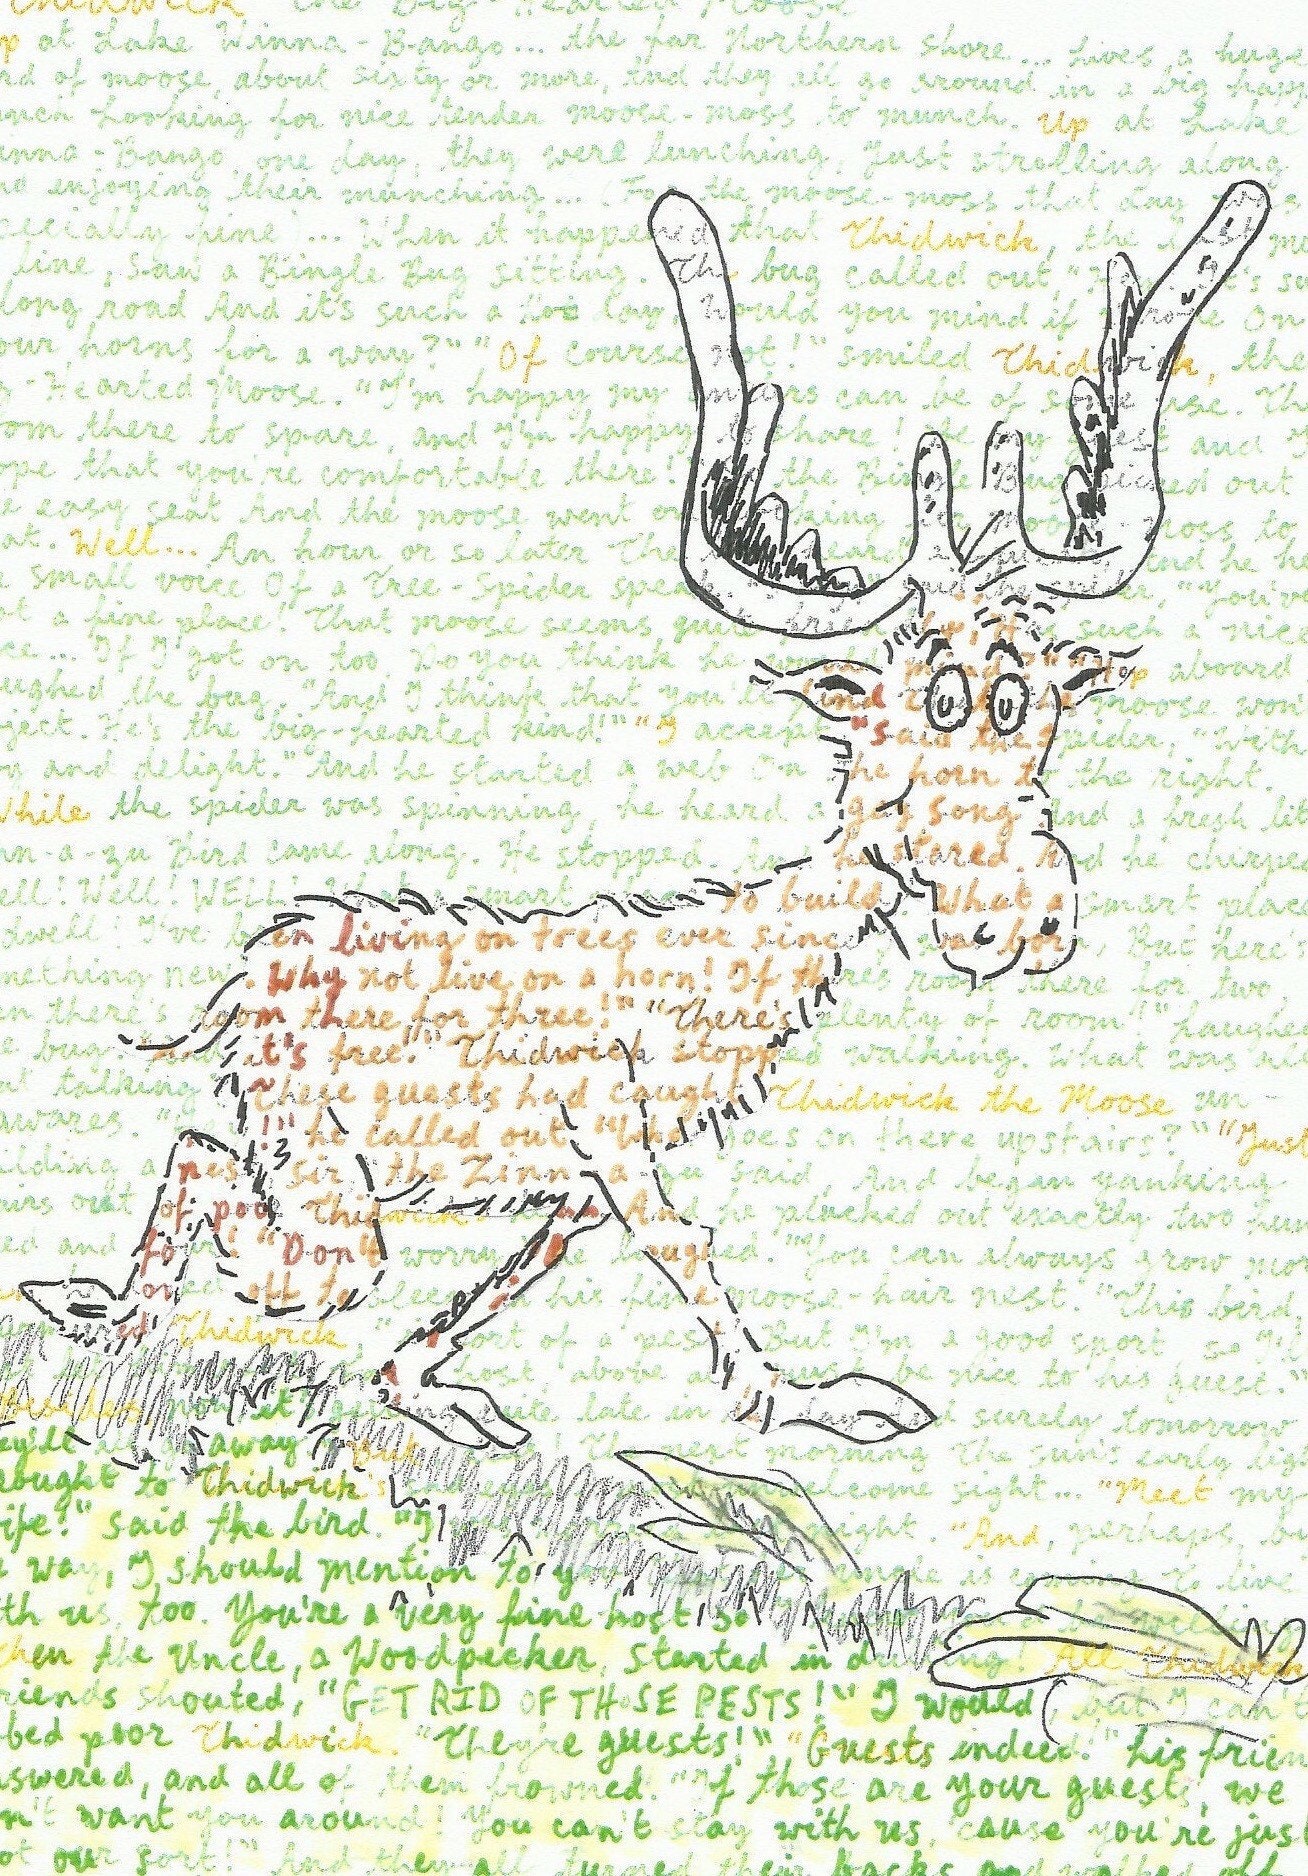 Thidwick the Big-Hearted Moose
up at Lake Winna-Bango... the far Northern shore... Lives a huge
rd of moose, about sixty or more, And they all go around in a big happy
unch Looking for nice tender moose-moss to munch. Up at Lake
inna-Bango, one day, they were lunching, Just strolling along
nd enjoying their munching... For the moose-moss that day was
pecially fine... When it happened that Thidwick, the last
line, saw a Bingle Bug sitting. The bug called out, "it's su
long road And it's such a hot day, Would you mind if I rode On
our horns for a way?" "Of course not!" smiled Thidwick, the
g-Hearted Moose. "I'm happy my antlers can be of some use. The
oom there to spare, and I'm happy to share! Be my guest and I
ope that you're comfortable there!" the Bingle Bug picked out
e easy seat And the moose went on looking for moose-moss to
at. Well... An hour or so later The heard and he he
e small voice Of a Tree-Spider speak "You've
ot a fine place! That moose seems quite friendly; He's such a nice
ce... If I got on too Do you think he would mind?" "Hop aboard
ughed the bug. "And I think that you'll find the moose won'
ject. He's the big-hearted kind!" "I accept," said the spider, "With
oy and delight." And he started a web On the horn to the right.
While the spider was spinning, he heard a gay song And a fresh litt
nn-a-zu Bird came along. He stopped. And he stared. And he chirped
ell! Well! WELL! What a smart to build! What a smart place
dwell! I've been living on trees ever since I was born, But here's
mething new. Why not live on a horn! If there's room there for two,
en there's room there for three!" "There's plenty of room" laughed
e bug. "And it's free!" Thidwick stopped walking. What was all
at talking? These guests had caught Thidwick the Moose un-
awares. "!" he called out "What goes on there upstairs?" "Just
uilding a nest, sir," the Zinn-a-zu said, And began yanking
airs out of poor Thidwick's head. And he plucked out exactly two hun
ed and four! "Don't worry," he laughed. "You can always grow mor
off to sleep in his fine moose-hair nest. "This bird,"
ured Thidwick, "sort of a pest! But I'm a good sport, so I'll
host above all must be nice to his guest."
it's getting quite late in the day And surely tomorrow
ey'll all go away! The next morning The sun's early ligh
rought to Thidwick's unwelcome sight... "Meet my
ife!" said the bird. night. "And, perhaps, by
e way, I should mention to you uncle is coming to live
ith us, too. You're a very fine host so
Then the Uncle, a Woodpecker, started in drilling! All Thidwick's
riends shouted, "GET RID OF THOSE PESTS!" "I would, but I can't
bbed poor Thidwick. "They're guests!" "Guests indeed!" his frien
swered, and all of them frowned. "If those are your guests, we
n't want you around! You can't stay with us, 'cause you're just
ot our sort!" And they all turned their backs and